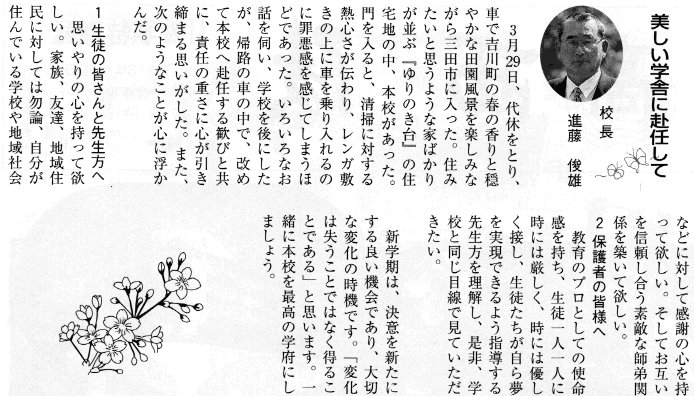 美しい学舎に赴任して
校長
進藤　俊雄
　３月29日、代休をとり、
車で吉川町の春の香りと穏
やかな田園風景を楽しみな
がら三田市に入った。住み
たいと思うような家ばかり
が並ぶ『ゆりのき台』の住
宅地の中、本校があった。
門を入ると、清掃に対する
熱心さが伝わり、レンガ敷
きの上に車を乗り入れるの
に罪悪感を感じてしまうほ
どであった。いろいろなお
話を伺い、学校を後にした
が、帰路の車の中で、改め
て本校へ赴任する歓びと共
に、責任の重さに心が引き
締まる思いがした。また、
次のようなことが心に浮か
んだ。
１生徒の皆さんと先生方へ
　思いやりの心を持って欲
しい。家族、友達、地域住
民に対しては勿論、自分が
住んでいる学校や地域社会
などに対して感謝の心を持
って欲しい。そしてお互い
を信頼し合う素敵な師弟関
係を築いて欲しい。
２保護者の皆様へ
　教育のプロとしての使命
感を持ち、生徒一人一人に
時には厳しく、時には優し
く接し、生徒たちが自ら夢
を実現できるよう指導する
先生方を理解し、是非、学
校と同じ目線で見ていただ
きたい。
　新学期は、決意を新たに
する良い機会であり、大切
な変化の時機です。「変化
は失うことではなく得るこ
とである」と思います。一
緒に本校を最高の学府にし
ましょう。